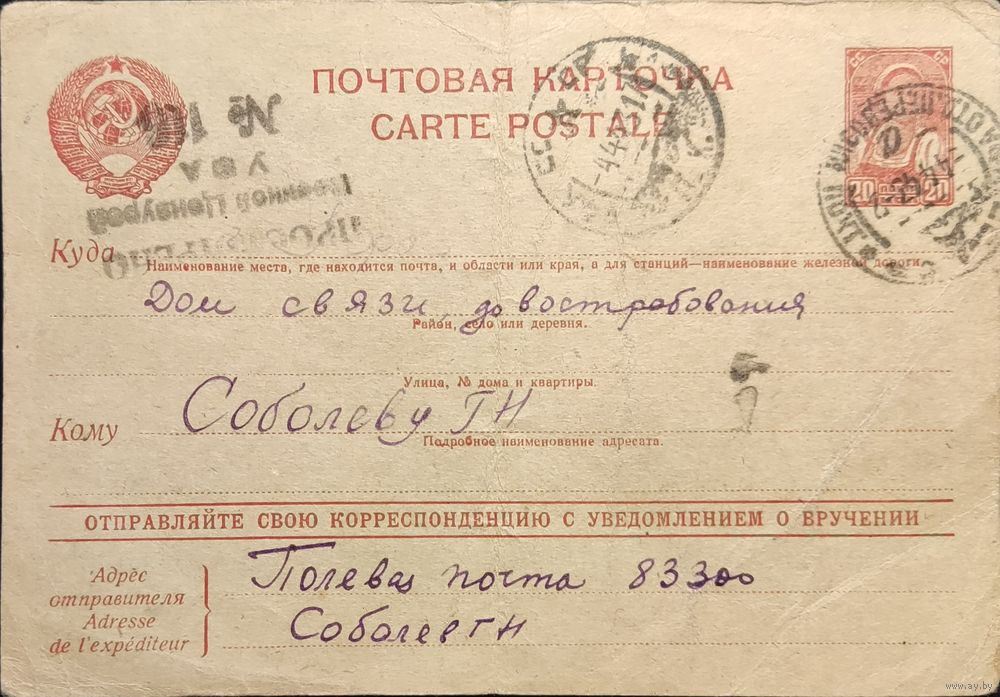 ПОЧТОВАЯ КАРТОЧКА
CARTE POSTALE
СССР
20 20
№
УФА
Военной Цензурой
ПРОСМОТРЕНО
Куда
Наименование места, где находится почта, и области или края, а для станций—наименование железной дороги.
Дом связи, до востребования
Район, село или деревня.
Улица, № дома и квартиры.
Кому
Соболеву ГН
Подробное наименование адресата.
ОТПРАВЛЯЙТЕ СВОЮ КОРРЕСПОНДЕНЦИЮ С УВЕДОМЛЕНИЕМ О ВРУЧЕНИИ
Адрес
отправителя
Adresse
de l'expéditeur
Полевая почта 83300
Соболев ГН
www.ay.by